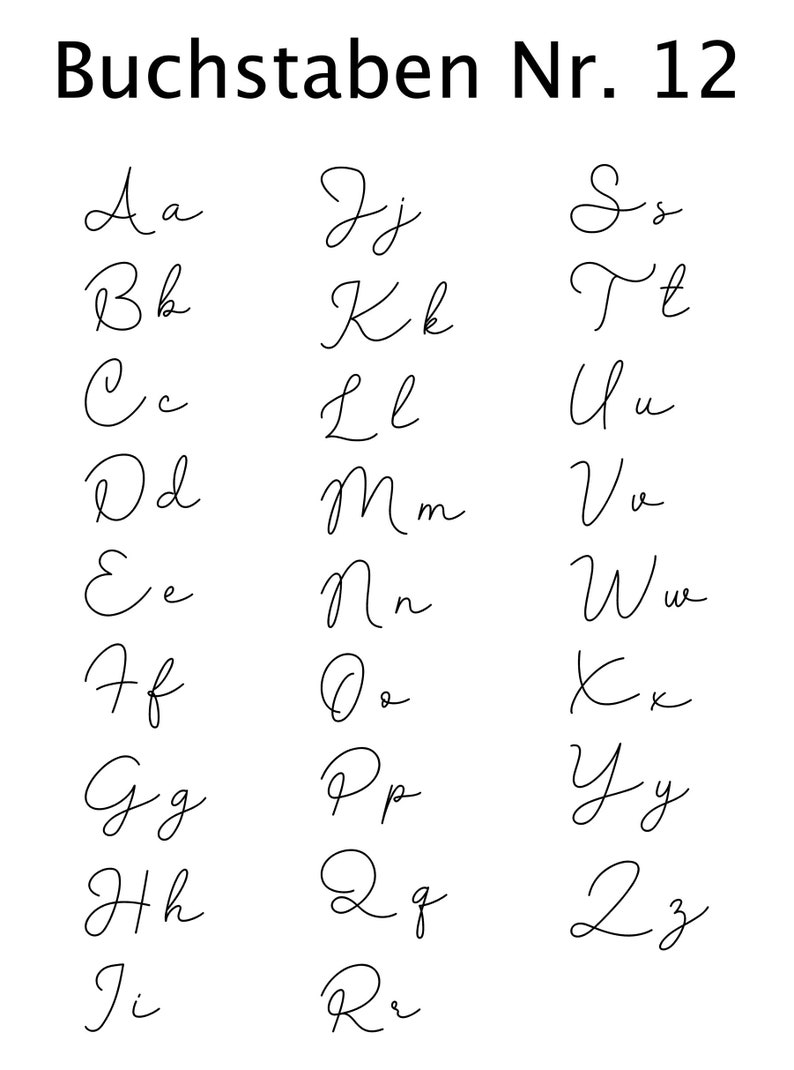 Buchstaben Nr. 12
Aa
Bb
Cc
Dd
Ee
Ff
Gg
Hh
Ii
Jj
Kk
Ll
Mm
Nn
Oo
Pp
Qq
Rr
Ss
Tt
Uu
Vv
Ww
Xx
Yy
Zz